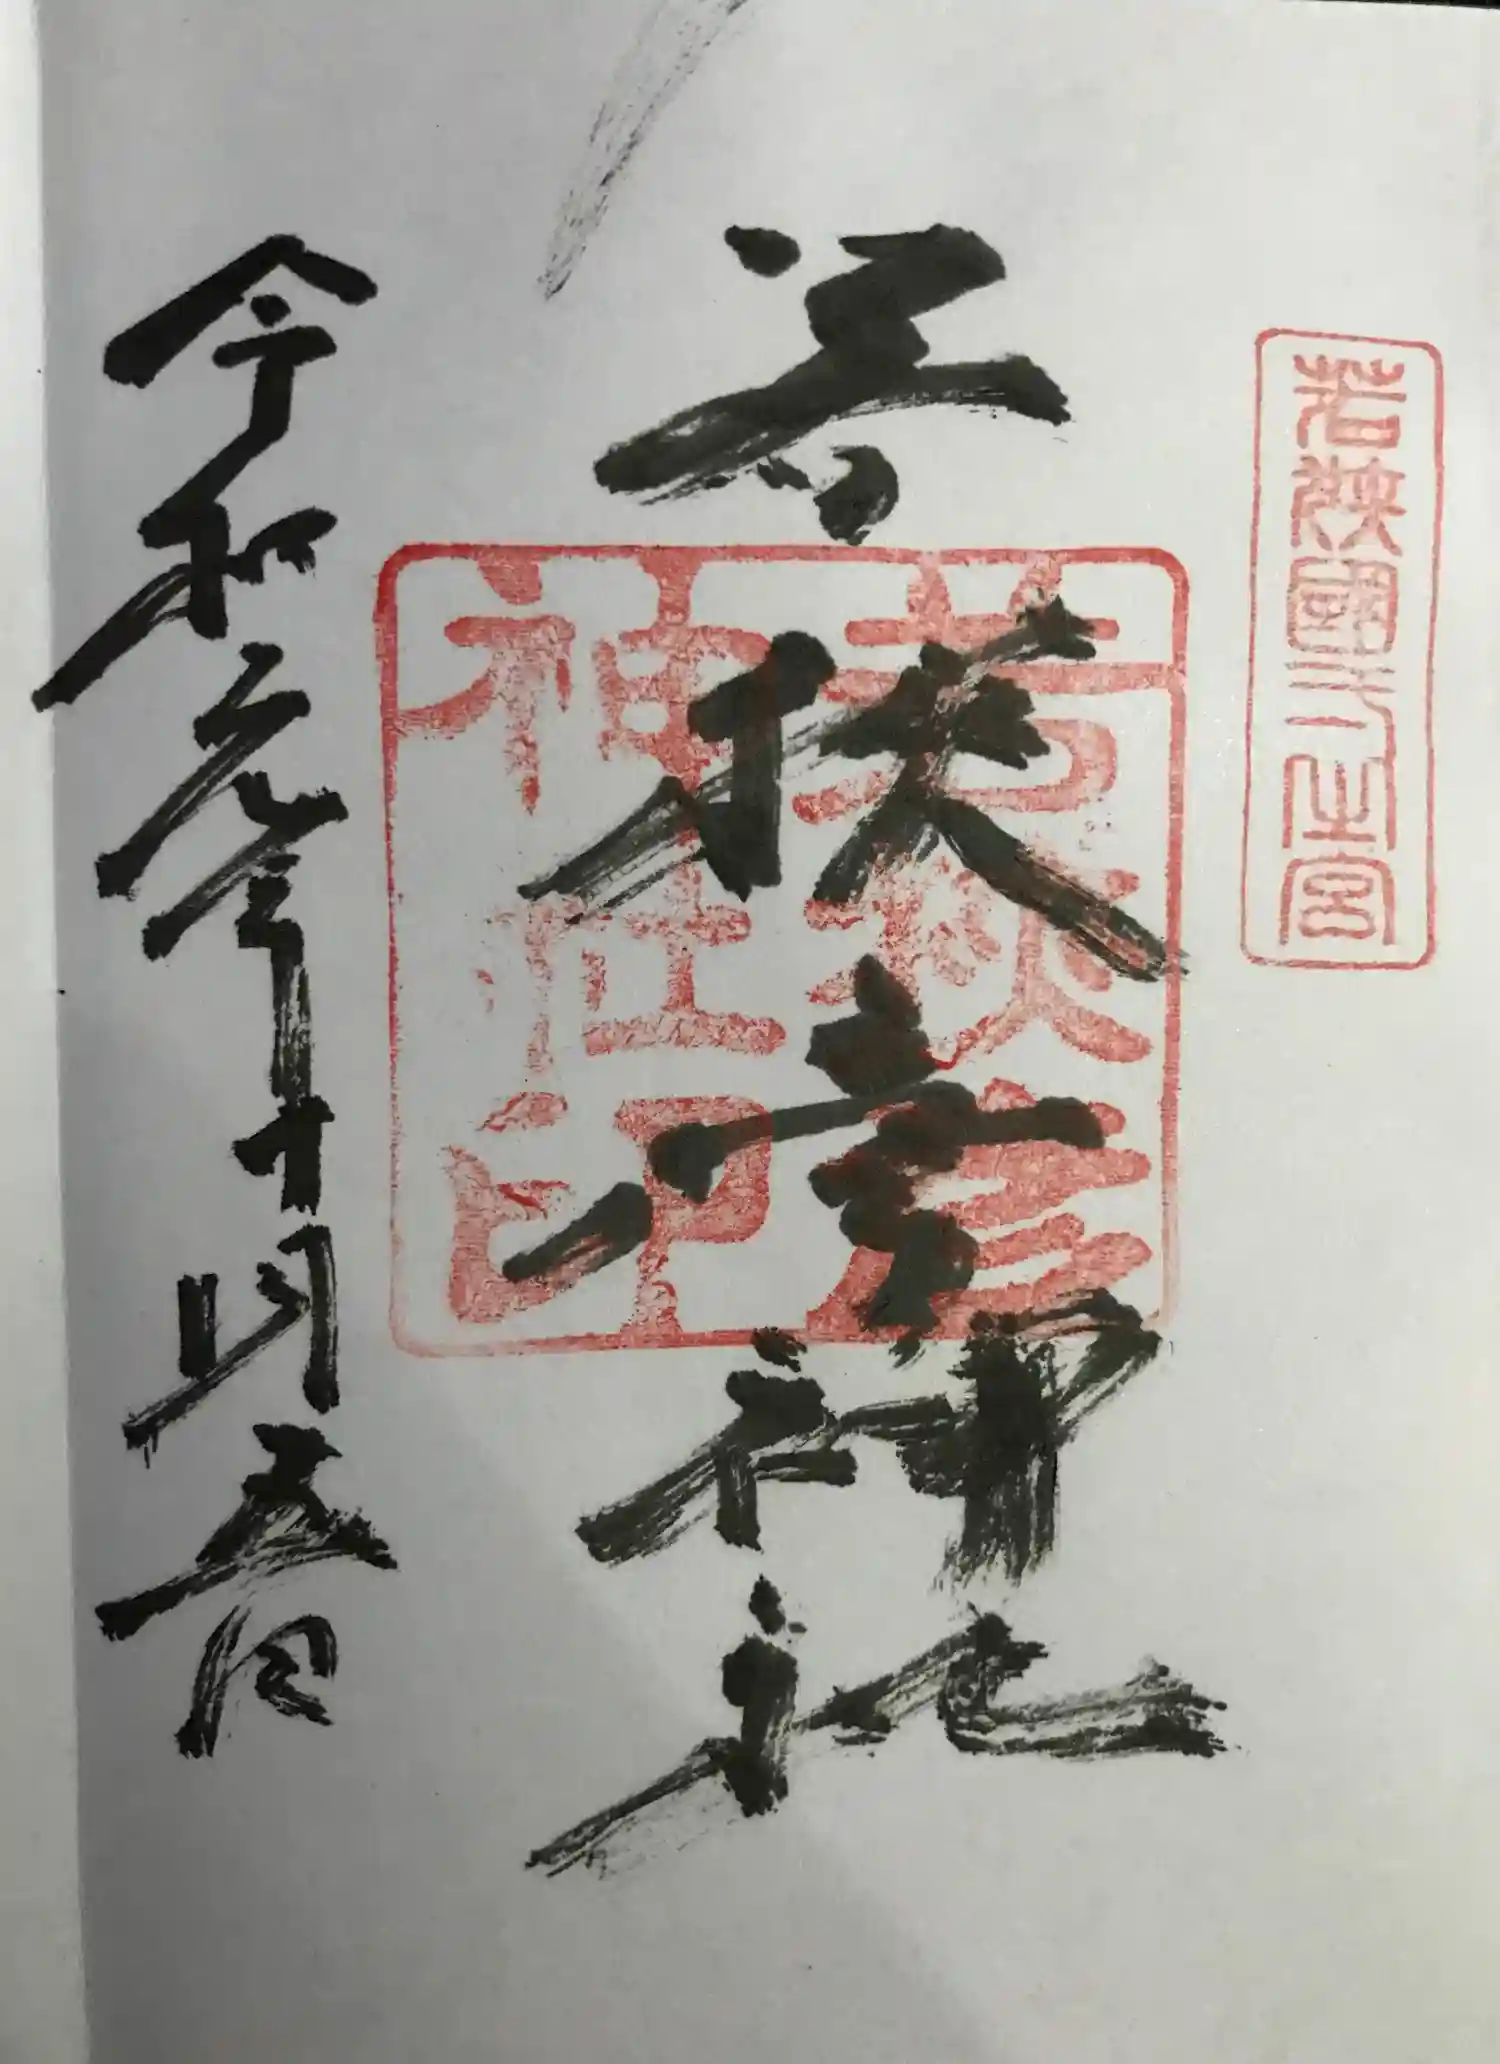 若狭國二之宮
若狭彦神社
若狭彦神社印
令和元年十月五日